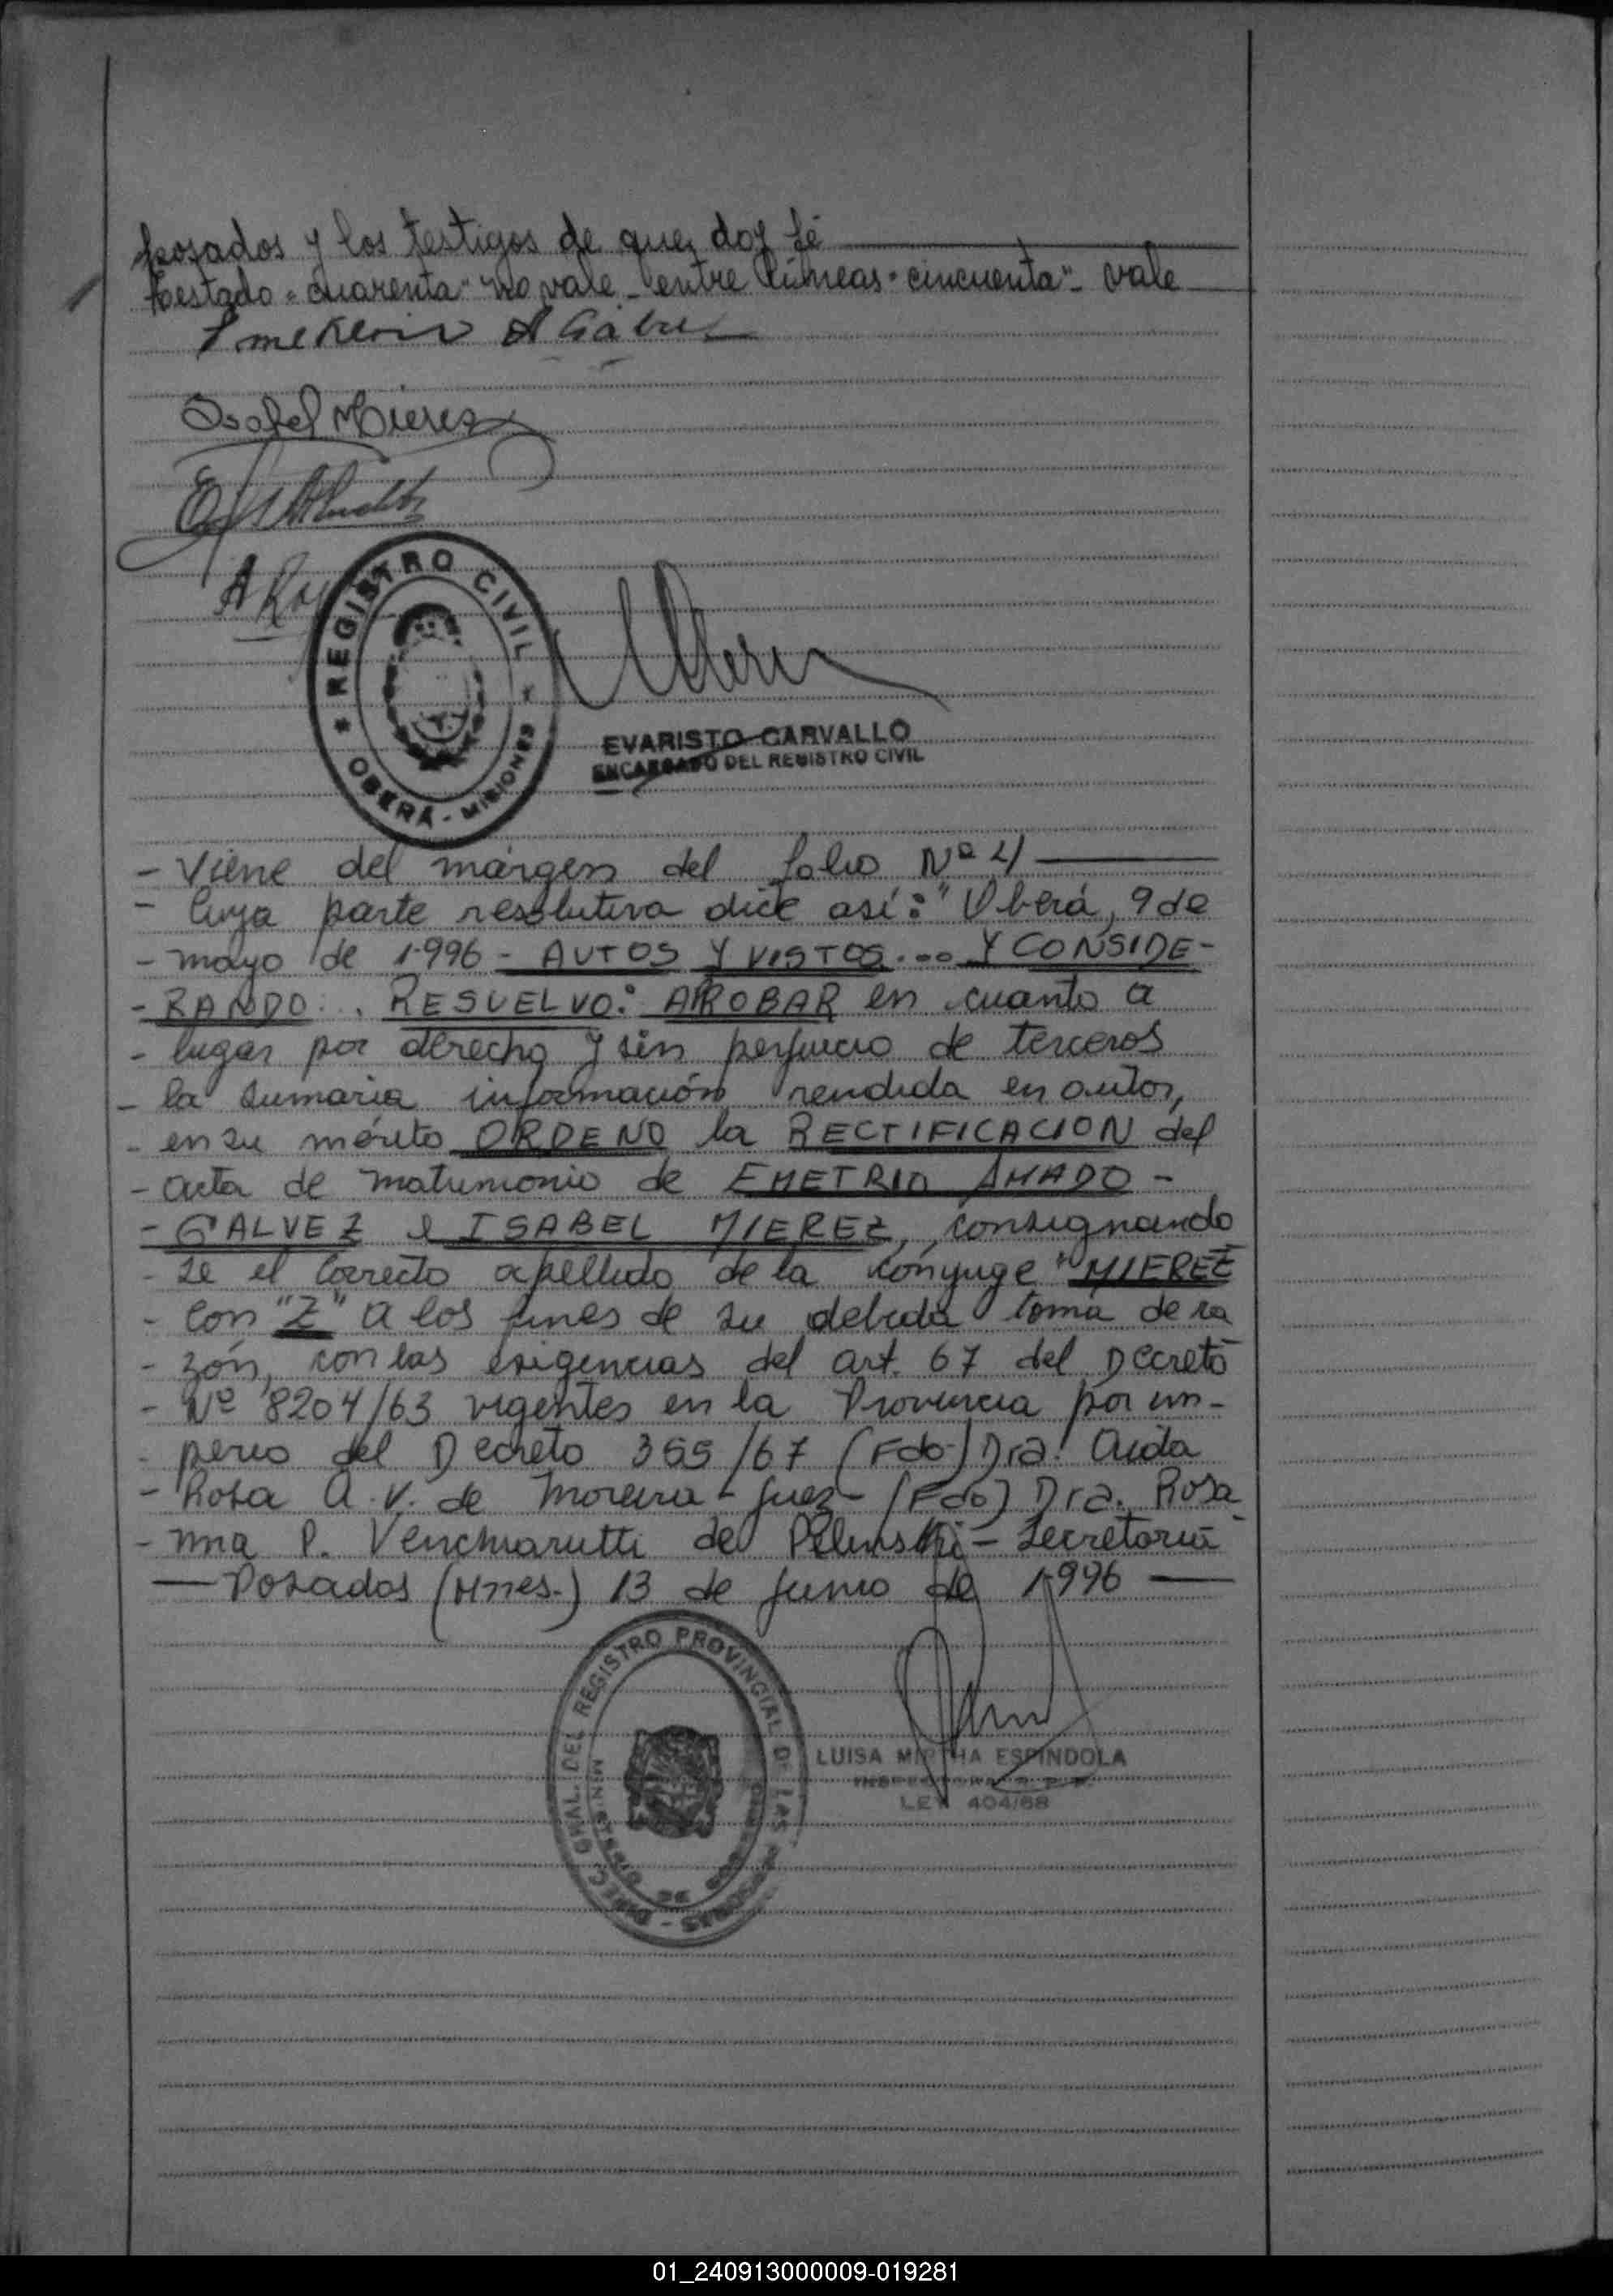 posados y los testigos de que doy fé
testado "cuarenta" no vale - entre lineas "cincuenta" - vale
Isabel Mierez
REGISTRO CIVIL
OBERÁ - MISIONES
EVARISTO CARVALLO
ENCARGADO DEL REGISTRO CIVIL
- Viene del márgen del folio Nº 4
- Cuya parte resolutiva dice así: "Oberá, 9 de
- mayo de 1.996 - AUTOS Y VISTOS... Y CONSIDE-
- RANDO... RESUELVO: APROBAR en cuanto a
- lugar por derecho y sin perjuicio de terceros
- la sumaria información rendida en autos,
- en su mérito ORDENO la RECTIFICACION del
- acta de matrimonio de EMETRIO AMADO -
- GALVEZ e ISABEL MIEREZ, consignando
- se el correcto apellido de la cónyuge "MIEREZ
- con "Z" a los fines de su debida toma de ra
- zón, con las exigencias del art. 67 del Decreto
- Nº 8204/63 vigentes en la Provincia por im-
- perio del Decreto 355/67 (Fdo.) Dra. Aida
- Rosa A. V. de Moreira - Juez - (Fdo) Dra. Rosa
- nna P. Venchiarutti de - Secretaria
- Posadas (Mnes.) 13 de junio de 1.996
DIREC. GRAL. DEL REGISTRO PROVINCIAL DE LAS PERSONAS
LUISA MIRTHA ESPINDOLA
LEY 404/68
01_240913000009-019281